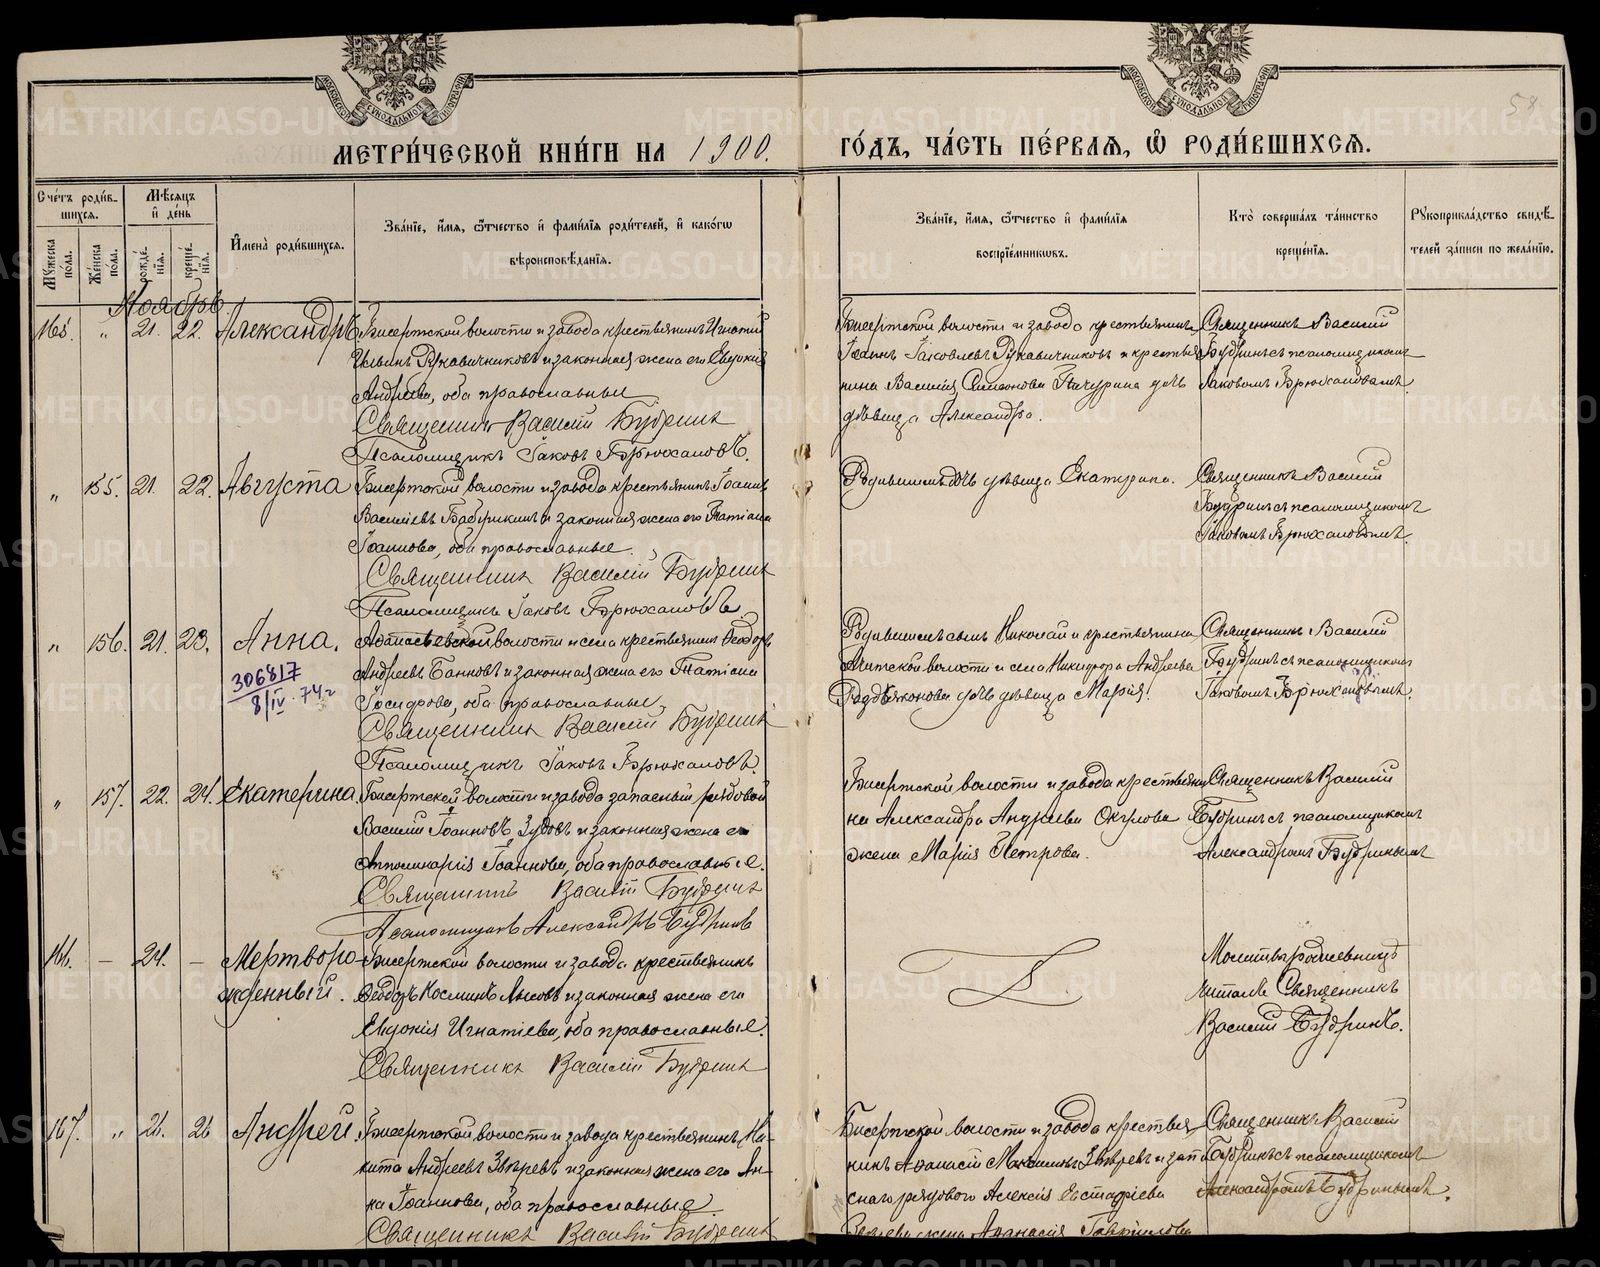 МОСКОВСКОЙ СѴНОДАЛЬНОЙ ТИПОГРАФІИ
МОСКОВСКОЙ СѴНОДАЛЬНОЙ ТИПОГРАФІИ
58
МЕТРИ́ЧЕСКОЙ КНИ́ГИ НА 1900.
ГО́ДЪ, ЧА́СТЬ ПЕ́РВАѦ, Ѡ҆ РОДИ́ВШИХСѦ.
Сче́тъ роди́в-
шихсѧ.
Мꙋ́жеска по́ла.
Же́нска по́ла.
Мѣ́сѧцъ и҆ де́нь
рожде́-нїѧ.
креще́-нїѧ.
И҆мена̀ роди́вшихсѧ.
Зва́нїе, и҆́мѧ, ѻ҆́тчество и҆ фами́лїѧ роди́телей, и҆ како́гѡ
вѣроисповѣ́данїѧ.
Зва́нїе, и҆́мѧ, ѻ҆́тчество и҆ фами́лїѧ
воспрїе́мникѡвъ.
Кто̀ соверша́лъ та́инство
креще́нїѧ.
Рꙋкоприкла́дство свидѣ́-
телей за́писи по жела́нїю.
Ноябрь
165. " 21. 22. Александръ
Бисертской волости и завода крестьянинъ Игнатій
Ильинъ Рукавичниковъ и законная жена его Евдокія
Андреева, оба православные
Священникъ Василій Будринъ
Псаломщикъ Іаковъ Брюхановъ.
Бисертской волости и завода крестьянинъ
Іоаннъ Іаковлевъ Рукавичниковъ и крестья
нина Василія Симеонова Пичугина дочь
дѣвица Александра.
Священникъ Василій
Будринъ съ псаломщикомъ
Іаковомъ Брюхановымъ.
" 155. 21. 22. Августа
Бисертской волости и завода крестьянинъ Іоаннъ
Василіевъ Бабушкинъ и законная жена его Татіана
Іоаннова, оба православные.
Священникъ Василій Будринъ
Псаломщикъ Іаковъ Брюхановъ
Родившейся дочь дѣвица Екатерина.
Священникъ Василій
Будринъ съ псаломщикомъ
Іаковомъ Брюхановымъ.
" 156. 21. 23. Анна.
306817
8/IV. 74 г
Афанасьевской волости и села крестьянинъ Феодоръ
Андреевъ Банновъ и законная жена его Татіана
Исидорова, оба православные,
Священникъ Василій Будринъ
Псаломщикъ Іаковъ Брюхановъ.
сынъ Николай и крестьянина
Ачитской волости и села Никифора Андреева
дочь дѣвица Марія.
Священникъ Василій
Будринъ съ псаломщикомъ
Іаковомъ Брюхановымъ.
" 157. 22. 24. Екатерина.
Бисертской волости и завода запасный рядовой
Василій Іоанновъ Зудовъ и законная жена его
Апполинарія Іоаннова, оба православные.
Священникъ Василій Будринъ
Псаломщикъ Александръ Будринъ
Бисертской волости и завода крестьяни
на Александра Андреева Окулова
жена Марія Петрова.
Священникъ Василій
Будринъ съ псаломщикомъ
Александромъ Будринымъ
166. – 24. – Мертворо-
жденный.
Бисертской волости и завода крестьянинъ
Феодоръ Косминъ Лысовъ и законная жена его
Евдокія Игнатіева, оба православные.
Священникъ Василій Будринъ
Молитвы родильницѣ
читалъ Священникъ
Василій Будринъ.
167. " 26. 26 Андрей.
Бисертской волости и завода крестьянинъ Ни-
кита Андреевъ Звѣревъ и законная жена его Ан-
на Іоаннова, оба православные.
Священникъ Василій Будринъ
Бисертской волости и завода крестья
нинъ Афанасій Максимовъ Звѣревъ и запа
снаго рядового Алексія Евстафіева
жена Афанасія Гаврилова
Священникъ Василій
Будринъ съ псаломщикомъ
Александромъ Будринымъ.
METRIKI.GASO-URAL.RU